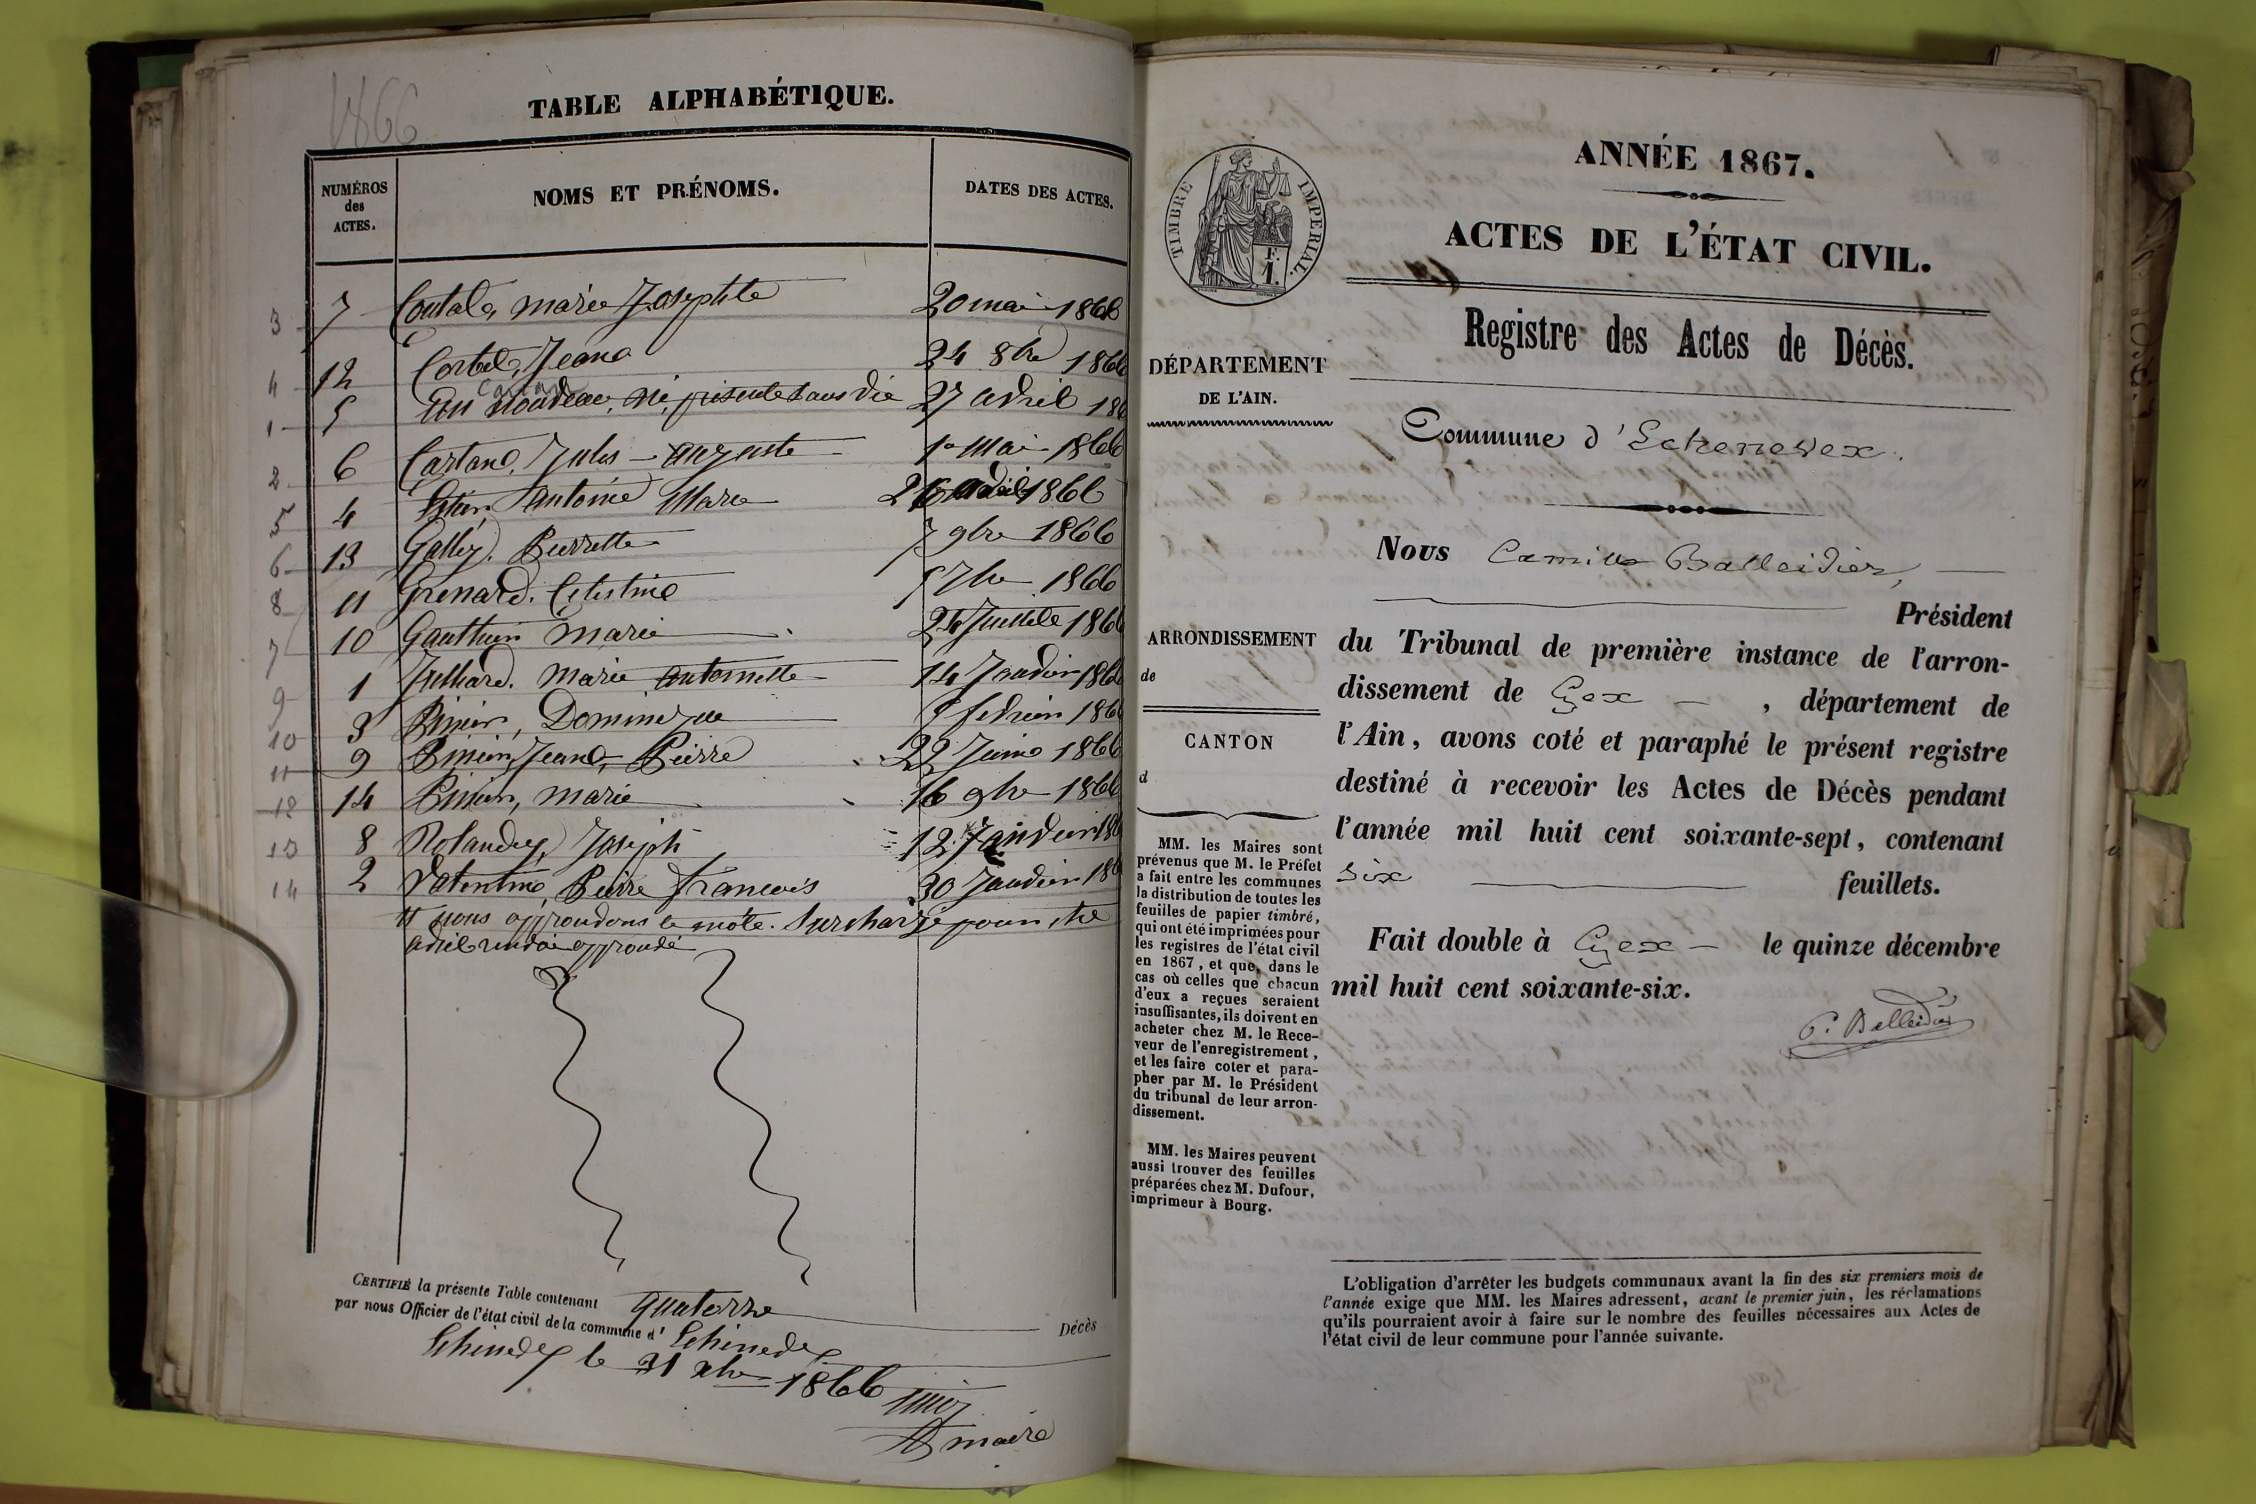 1866
TABLE ALPHABÉTIQUE.
NUMÉROS des ACTES.
NOMS ET PRÉNOMS.
DATES DES ACTES.
3 7 Coutat, marie Josephte 20 mai 1866
4 12 Jean 24 8bre 1866
1 5 né, présenté sans vie 27 avril 186
2 6 Cartand, Jules - auguste 1er Mai 1866
5 4 antoine Marie 26 avril 1866
6 13 Gallay, Pierrette 7 9bre 1866
8 11 Grenard. Célestine 5 7bre 1866
7 10 Gauthier Marie 24 Juillet 1866
9 1 Julliard. Marie antoinette 14 Janvier 186
10 3 Dominique 5 février 186
11 9 Jean - Pierre 22 Juin 1866
12 14 marie 16 9bre 1866
13 8 Rolandez, Joseph 12 186
14 2 Valentin, Pierre francois 30 Janvier 186
nous approuvons le mote. Surchargé pour être
avril approuvé
CERTIFIÉ la présente Table contenant quatorze Décès
par nous Officier de l'état civil de la commune d' Echenevex
Echenevex le 31 xbre 1866
maire
TIMBRE IMPÉRIAL.
F.
1.
DÉPARTEMENT
DE L'AIN.
ARRONDISSEMENT
de
CANTON
d
MM. les Maires sont
prévenus que M. le Préfet
a fait entre les communes
la distribution de toutes les
feuilles de papier timbré,
qui ont été imprimées pour
les registres de l'état civil
en 1867, et que, dans le
cas où celles que chacun
d'eux a reçues seraient
insuffisantes, ils doivent en
acheter chez M. le Rece-
veur de l'enregistrement,
et les faire coter et para-
pher par M. le Président
du tribunal de leur arron-
dissement.
MM. les Maires peuvent
aussi trouver des feuilles
préparées chez M. Dufour,
imprimeur à Bourg.
ANNÉE 1867.
ACTES DE L'ÉTAT CIVIL.
Registre des Actes de Décès.
Commune d'Echenevex.
Nous Camille Balleidier,
Président
du Tribunal de première instance de l'arron-
dissement de Gex, département de
l'Ain, avons coté et paraphé le présent registre
destiné à recevoir les Actes de Décès pendant
l'année mil huit cent soixante-sept, contenant
six feuillets.
Fait double à Gex le quinze décembre
mil huit cent soixante-six.
C. Balleidier
L'obligation d'arrêter les budgets communaux avant la fin des six premiers mois de
l'année exige que MM. les Maires adressent, avant le premier juin, les réclamations
qu'ils pourraient avoir à faire sur le nombre des feuilles nécessaires aux Actes de
l'état civil de leur commune pour l'année suivante.